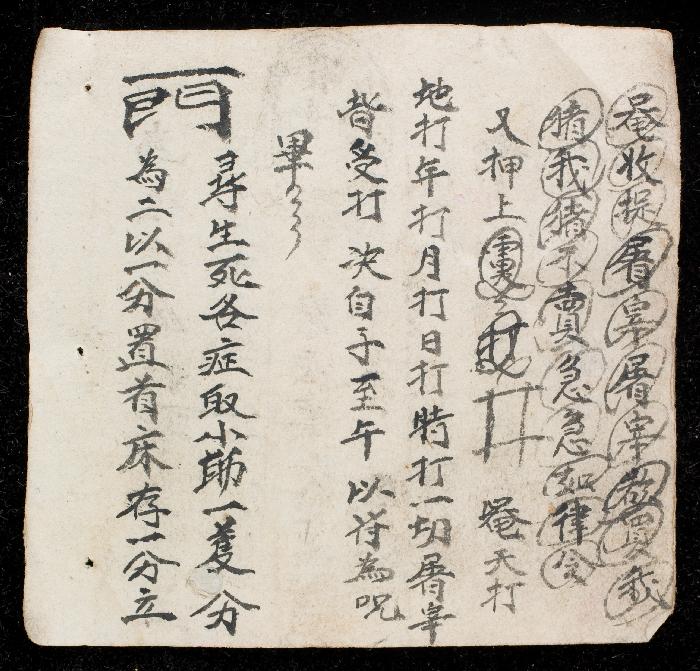 唵收捉屠宰屠宰敢買我
猪我猪不賣急急如律令
又押上 唵天打
地打年打月打日打時打一切屠宰
皆受打决自子至午以符為呪
畢
門 尋生死各症取小 一隻分
為二以一分置 床存一分立